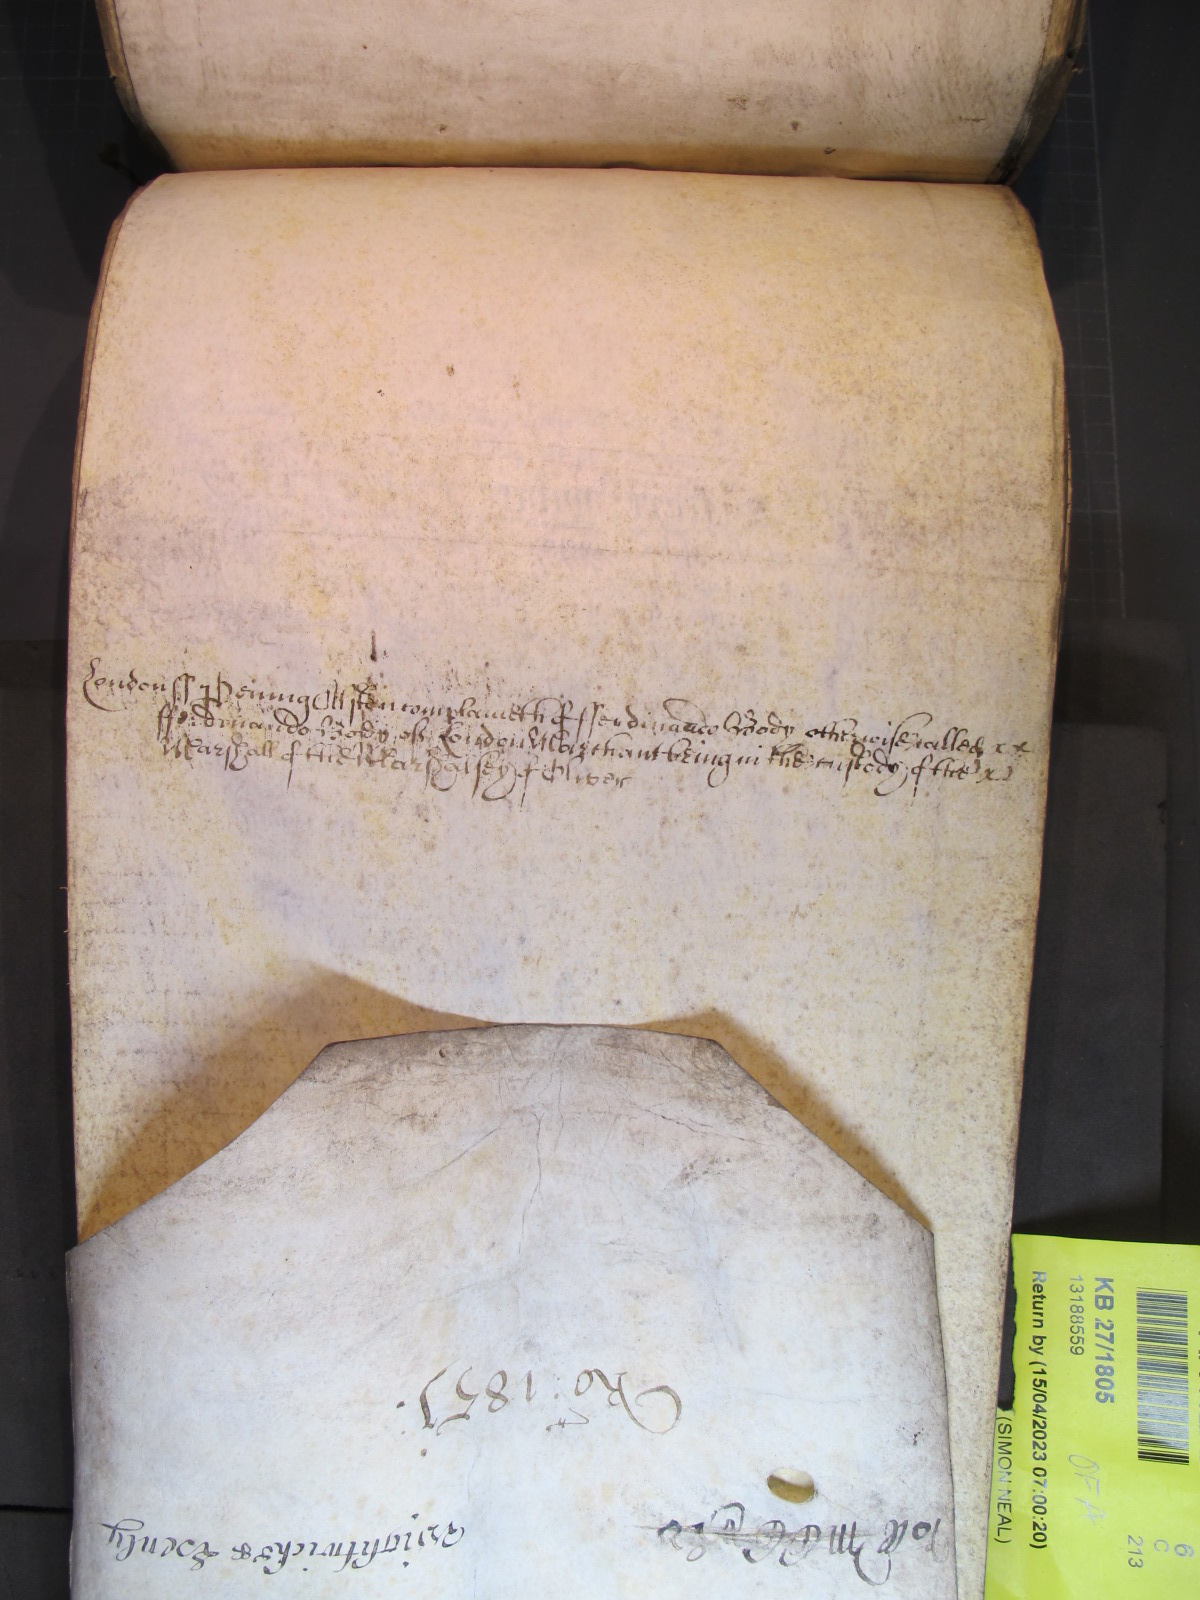 London ss Pennig Alsten complaineth of fferdinando Body otherwise called
fferdinando Body of London Marchant being in the custody of the
Marshall of the Marshalsey of Oliver
Ro: 1857
Wightwicke & Henly
KB 27/1805
13188559
Return by (15/04/2023 07:00:20)
(SIMON NEAL)
6
C
213